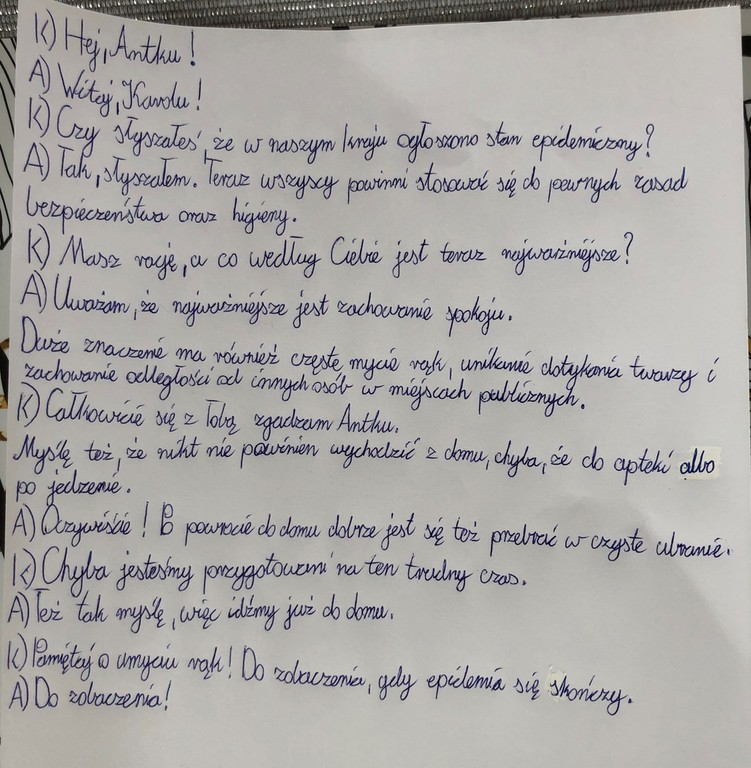 K) Hej, Antku!
A) Witaj, Karolu!
K) Czy słyszałeś, że w naszym kraju ogłoszono stan epidemiczny?
A) Tak, słyszałem. Teraz wszyscy powinni stosować się do pewnych zasad
bezpieczeństwa oraz higieny.
K) Masz rację, a co według Ciebie jest teraz najważniejsze?
A) Uważam, że najważniejsze jest zachowanie spokoju.
Duże znaczenie ma również częste mycie rąk, unikanie dotykania twarzy i
zachowanie odległości od innych osób w miejscach publicznych.
K) Całkowicie się z Tobą zgadzam Antku.
Myślę też, że nikt nie powinien wychodzić z domu, chyba, że do apteki albo
po jedzenie.
A) Oczywiście! Po powrocie do domu dobrze jest się też przebrać w czyste ubranie.
K) Chyba jesteśmy przygotowani na ten trudny czas.
A) Też tak myślę, więc idźmy już do domu.
K) Pamiętaj o umyciu rąk! Do zobaczenia, gdy epidemia się skończy.
A) Do zobaczenia!